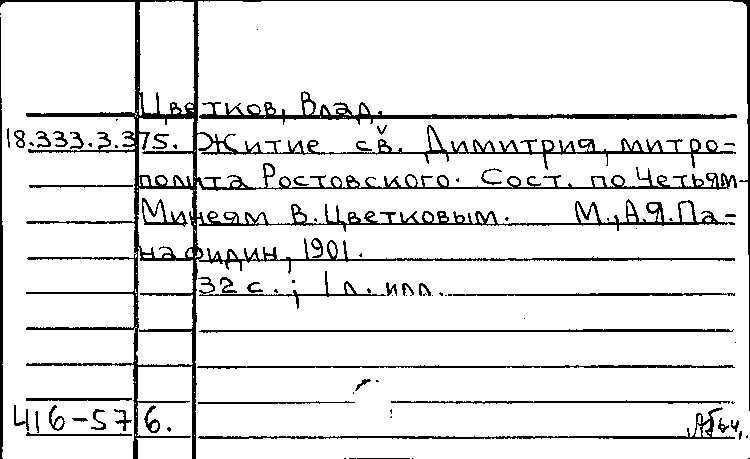 Цветков, Влад.
18.333.3.375. Житие св. Димитрия, митро-
полита Ростовского. Сост. по Четьям-
Минеям В. Цветковым. М., А.Я. Па-
нафидин, 1901.
32 с.; 1 л. илл.
416-576.